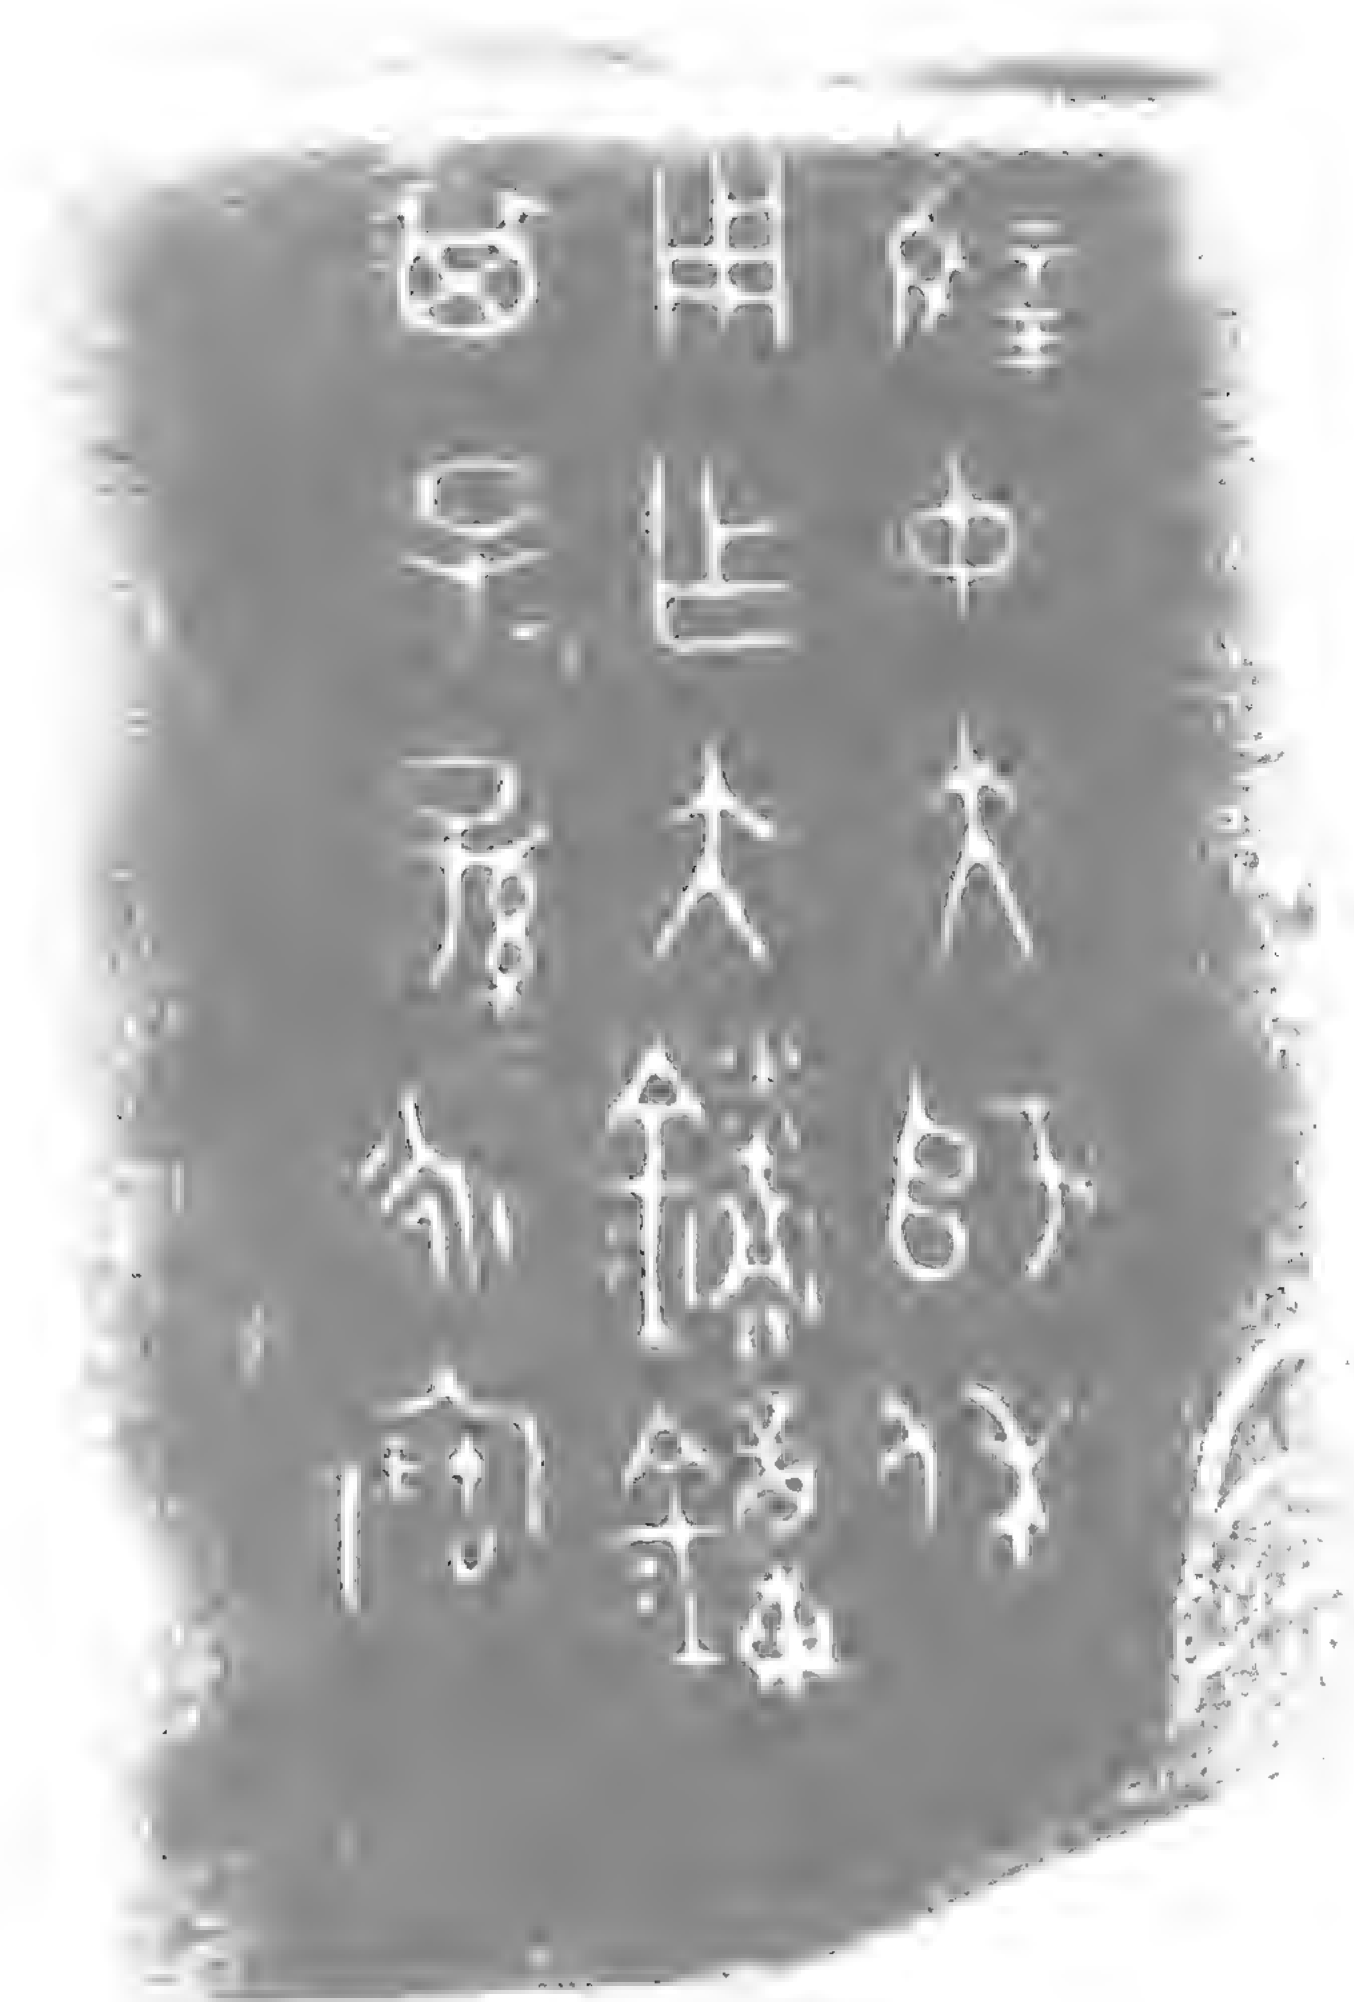 揚中大師休
用乍大鑙鐘
其子孫永寶